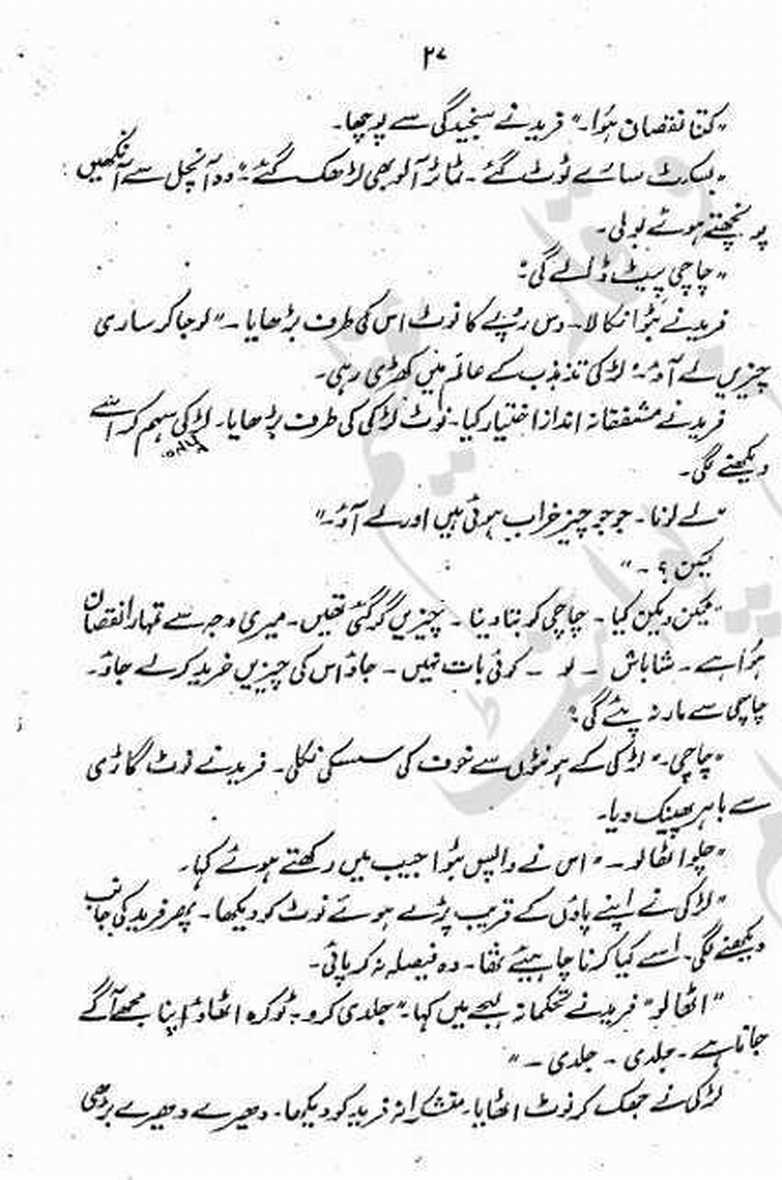 ۲۷
"کتنا نقصان ہُوا۔" فرید نے سنجیدگی سے پوچھا۔
"بسکٹ سارے ٹوٹ گئے۔ ٹماٹر آلو بھی لڑھک گئے۔" وہ آنچل سے آنکھیں
پونچھتے ہوئے بولی۔
"چاچی پیٹ ڈالے گی"
فرید نے بٹوا نکالا۔ دس روپے کا نوٹ اس کی طرف بڑھایا۔ "لو جا کر ساری
چیزیں لے آؤ۔" لڑکی تذبذب کے عالم میں کھڑی رہی۔
فرید نے مشفقانہ انداز اختیار کیا۔ نوٹ لڑکی کی طرف بڑھایا۔ لڑکی سہم کر اسے
دیکھنے لگی۔
"لے لونا۔ جو جو چیز خراب ہوئی ہیں اور لے آؤ۔"
لیکن ؟ ۔ "
"لیکن ویکن کیا ۔ چاچی کو بتا دینا ۔ چیزیں گر گئی تھیں۔ میری وجہ سے تمہارا نقصان
ہُوا ہے ۔ شاباش ۔ لو ۔ کوئی بات نہیں ۔ جاؤ اس کی چیزیں خرید کر لے جاؤ۔
چاچی سے مار نہ پڑے گی"
"چاچی۔" لڑکی کے ہونٹوں سے خوف کی سسکی نکلی۔ فرید نے نوٹ گاڑی
سے باہر پھینک دیا۔
"چلو اٹھا لو ۔ " اس نے واپس بٹوا جیب میں رکھتے ہوئے کہا۔
"لڑکی نے اپنے پاؤں کے قریب پڑے ہوئے نوٹ کو دیکھا۔ پھر فرید کی جانب
دیکھنے لگی۔ اسے کیا کرنا چاہیئے تھا۔ وہ فیصلہ نہ کر پائی۔
"اٹھا لو" فرید نے تحکمانہ لہجے میں کہا۔ "جلدی کرو۔ ٹوکرہ اٹھاؤ اپنا مجھے آگے
جانا ہے ۔ جلدی ۔ جلدی ۔ "
لڑکی نے جھک کر نوٹ اٹھایا۔ متشکرانہ فرید کو دیکھا۔ دھیرے دھیرے بڑھی